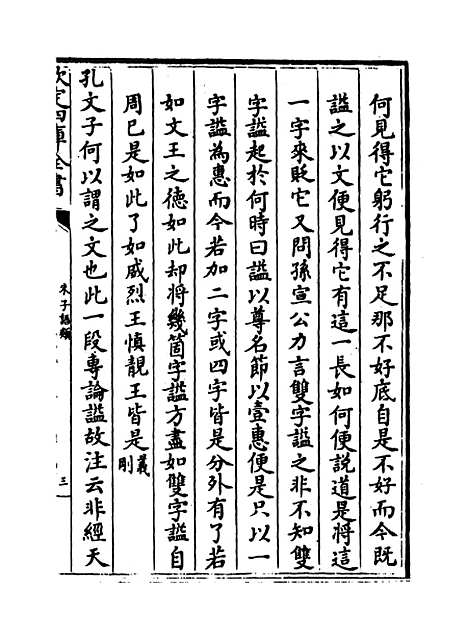 何見得它躬行之不足那不好底自是不好而今既
諡之以文便見得它有這一長如何便説道是將這
一字來貶它又問孫宣公力言雙字諡之非不知雙
字諡起於何時曰諡以尊名節以壹惠便是只以一
字諡為惠而今若加二字或四字皆是分外有了若
如文王之徳如此却將幾箇字諡方盡如雙字諡自
周已是如此了如威烈王慎靚王皆是義剛
孔文子何以謂之文也此一段專論諡故注云非經天
欽定四庫全書
朱子語類
三